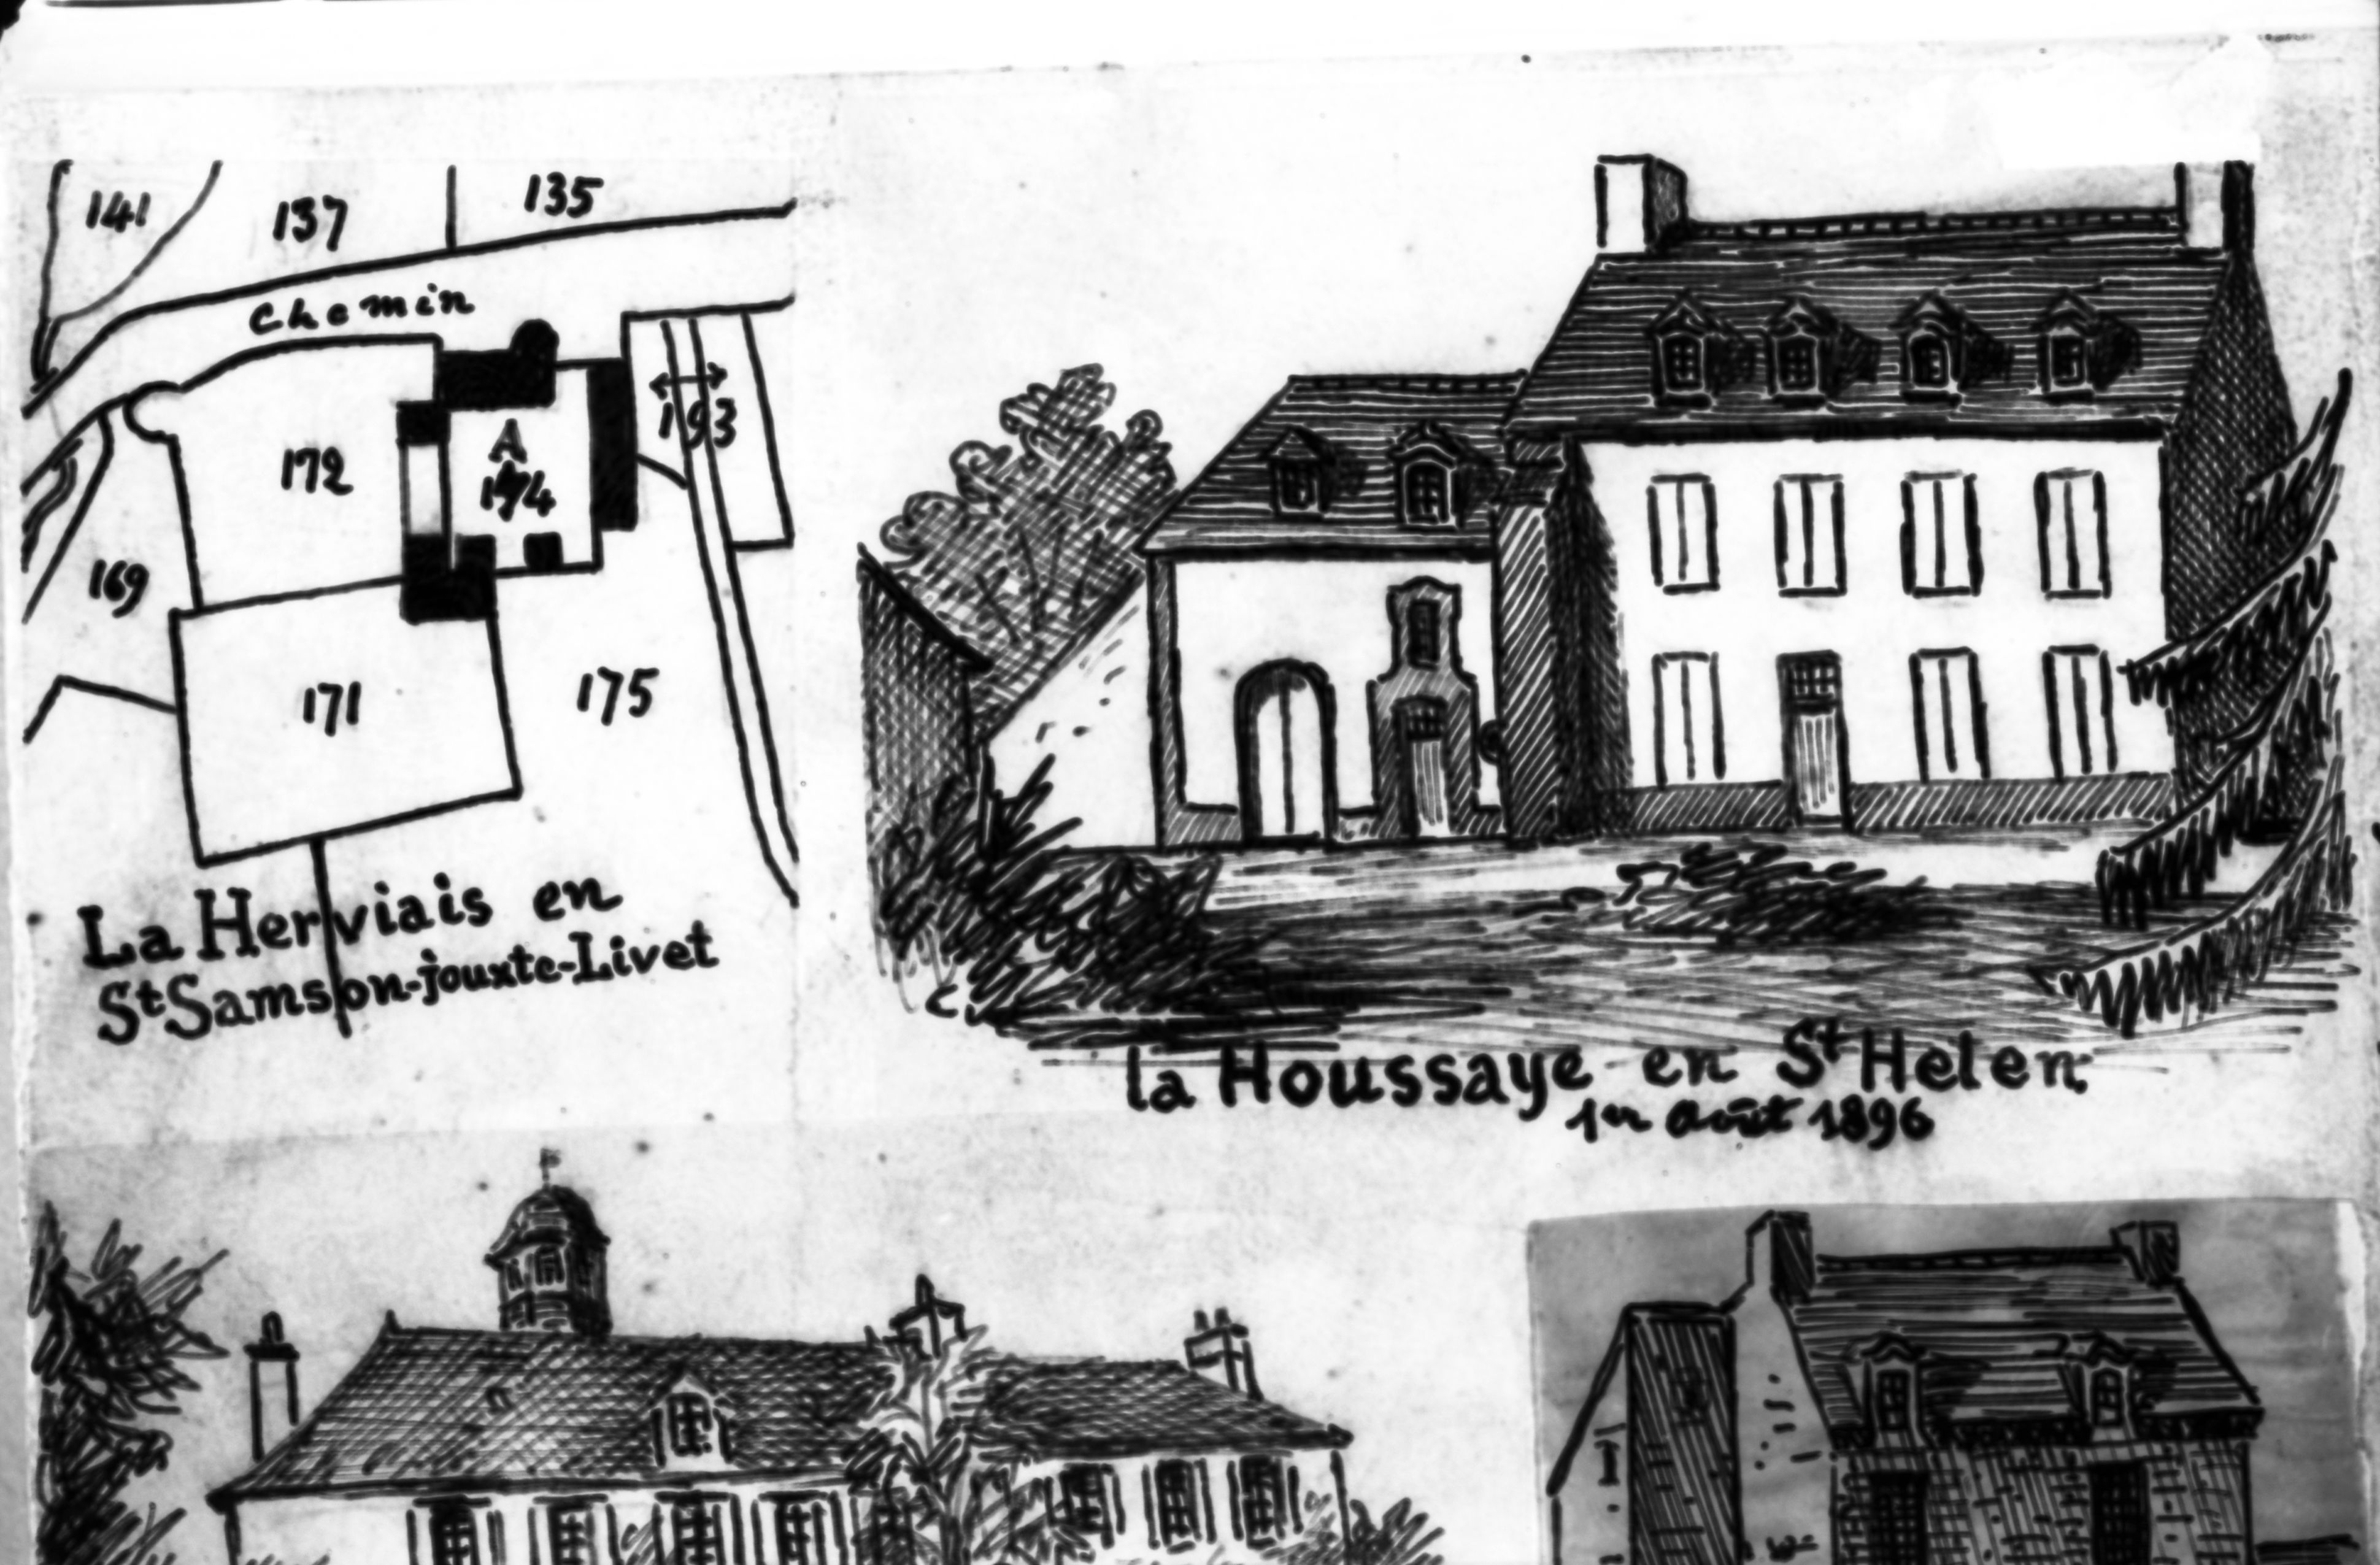 141
137
135
Chemin
193
A
172
174
169
171
175
La Herviais en
St Samson-jouxte-Livet
la Houssaye en St Helen
1er Août 1896